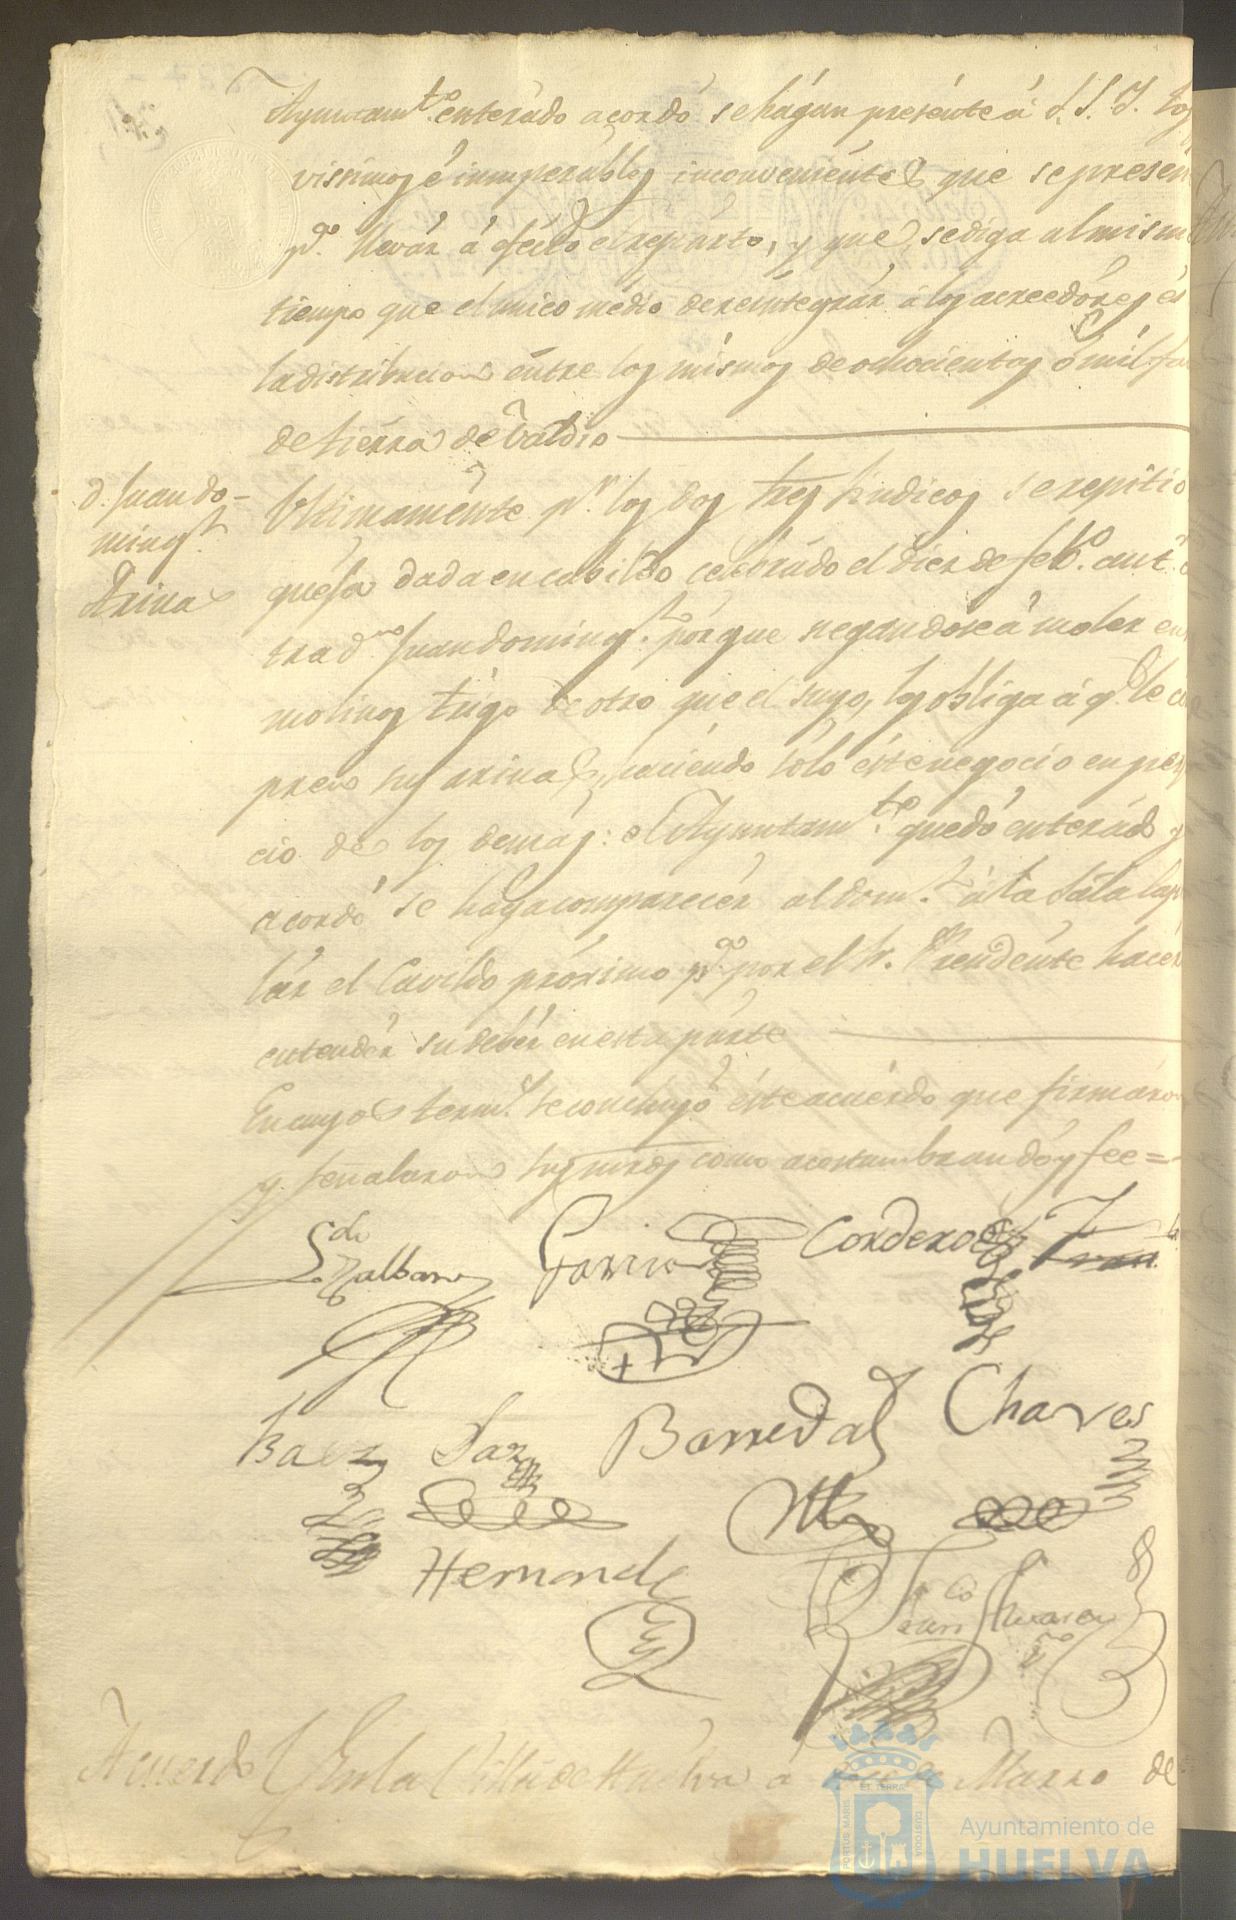 Ayuntam.to enterado acordó se hagan presente á S. S. Y. los
vissimos é insuperables inconvenientes que se presen
p.a llevár á efécto el reparto, y que se diga al mism
tiempo que el unico médio de reintegrár á los acreedóres és
la distribucion entre los mismos de ochocientos ó mil fa
de tierra de Valdio
D. Juan do-
ming.z
Arinas
Ultimamente p.r los dos Sres Sindicos se repitio
quesa dada en cabildo celebrado el diez de feb.o ant.
tra d.n Juan doming.z porque negandose á moler en
molinos trigo de otro que el suyo, los obliga á q.e le c
prens sus arinas, haciendo sólo éste negocio en per
cio de los demás: el Ayuntam.to quedó enterádo y
acordó se haga comparecér al dom.z á la Sala Cap
lár el Cavildo próximo p.a por el Sr. Presidénte hacér
entendér su debér en esta párte
En cuyos term.s se concluyó éste acuérdo que firmáron
y señalaron sus mrds como acostumbran dóy fee =
L.do Malbar
Garcia
Cordero
Fran.
Baez
Saz
Barreda
Chaves
Hernandz
Juan Alvarez
Acuerdo
En la Villa de Huelva á de Marzo de
PORTUS MARIS ET TERRÆ CUSTODIA
Ayuntamiento de
HUELVA